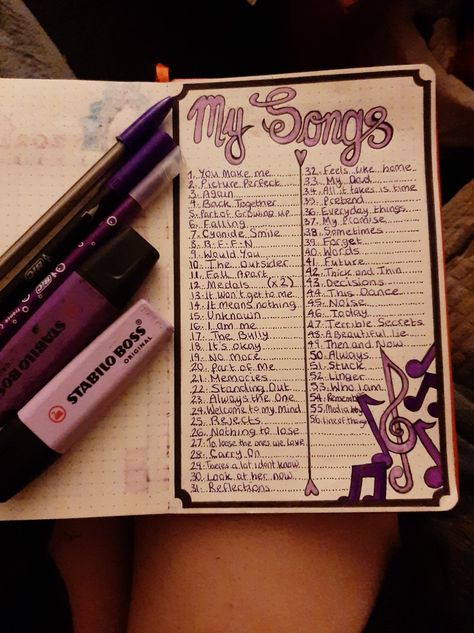 My Songs
1. You make me
2. Picture Perfect
3. Again
4. Back Together
5. Part of Growing up
6. Falling
7. Cyanide Smile
8. B.F.F.N
9. Would You
10. The Outsider
11. Fall Apart
12. Medals (x2)
13. It won't get to me
14. It means nothing
15. Unknown
16. I am me
17. The Bully
18. It's okay
19. No more
20. Part of Me
21. Memories
22. Standing Out
23. Always the One
24. Welcome to my mind
25. Rejects
26. Nothing to lose
27. To loose the ones we love
28. Carry On
29. Theres a lot i dont know
30. Look at her now
31. Reflections
32. Feels like home
33. My Dad
34. All it takes is time
35. Pretend
36. Everyday things
37. My Promise
38. Sometimes
39. Forget
40. Words
41. Future
42. Thick and Thin
43. Decisions
44. This Dance
45. Noise
46. Today
47. Terrible Secrets
48. A Beautiful lie
49. Then and Now
50. Always
51. Stuck
52. Linger
53. Who I am
54. Remember
55. Media
56. Line of the
STABILO BOSS
ORIGINAL
STABILO BOSS
BIC
BIC